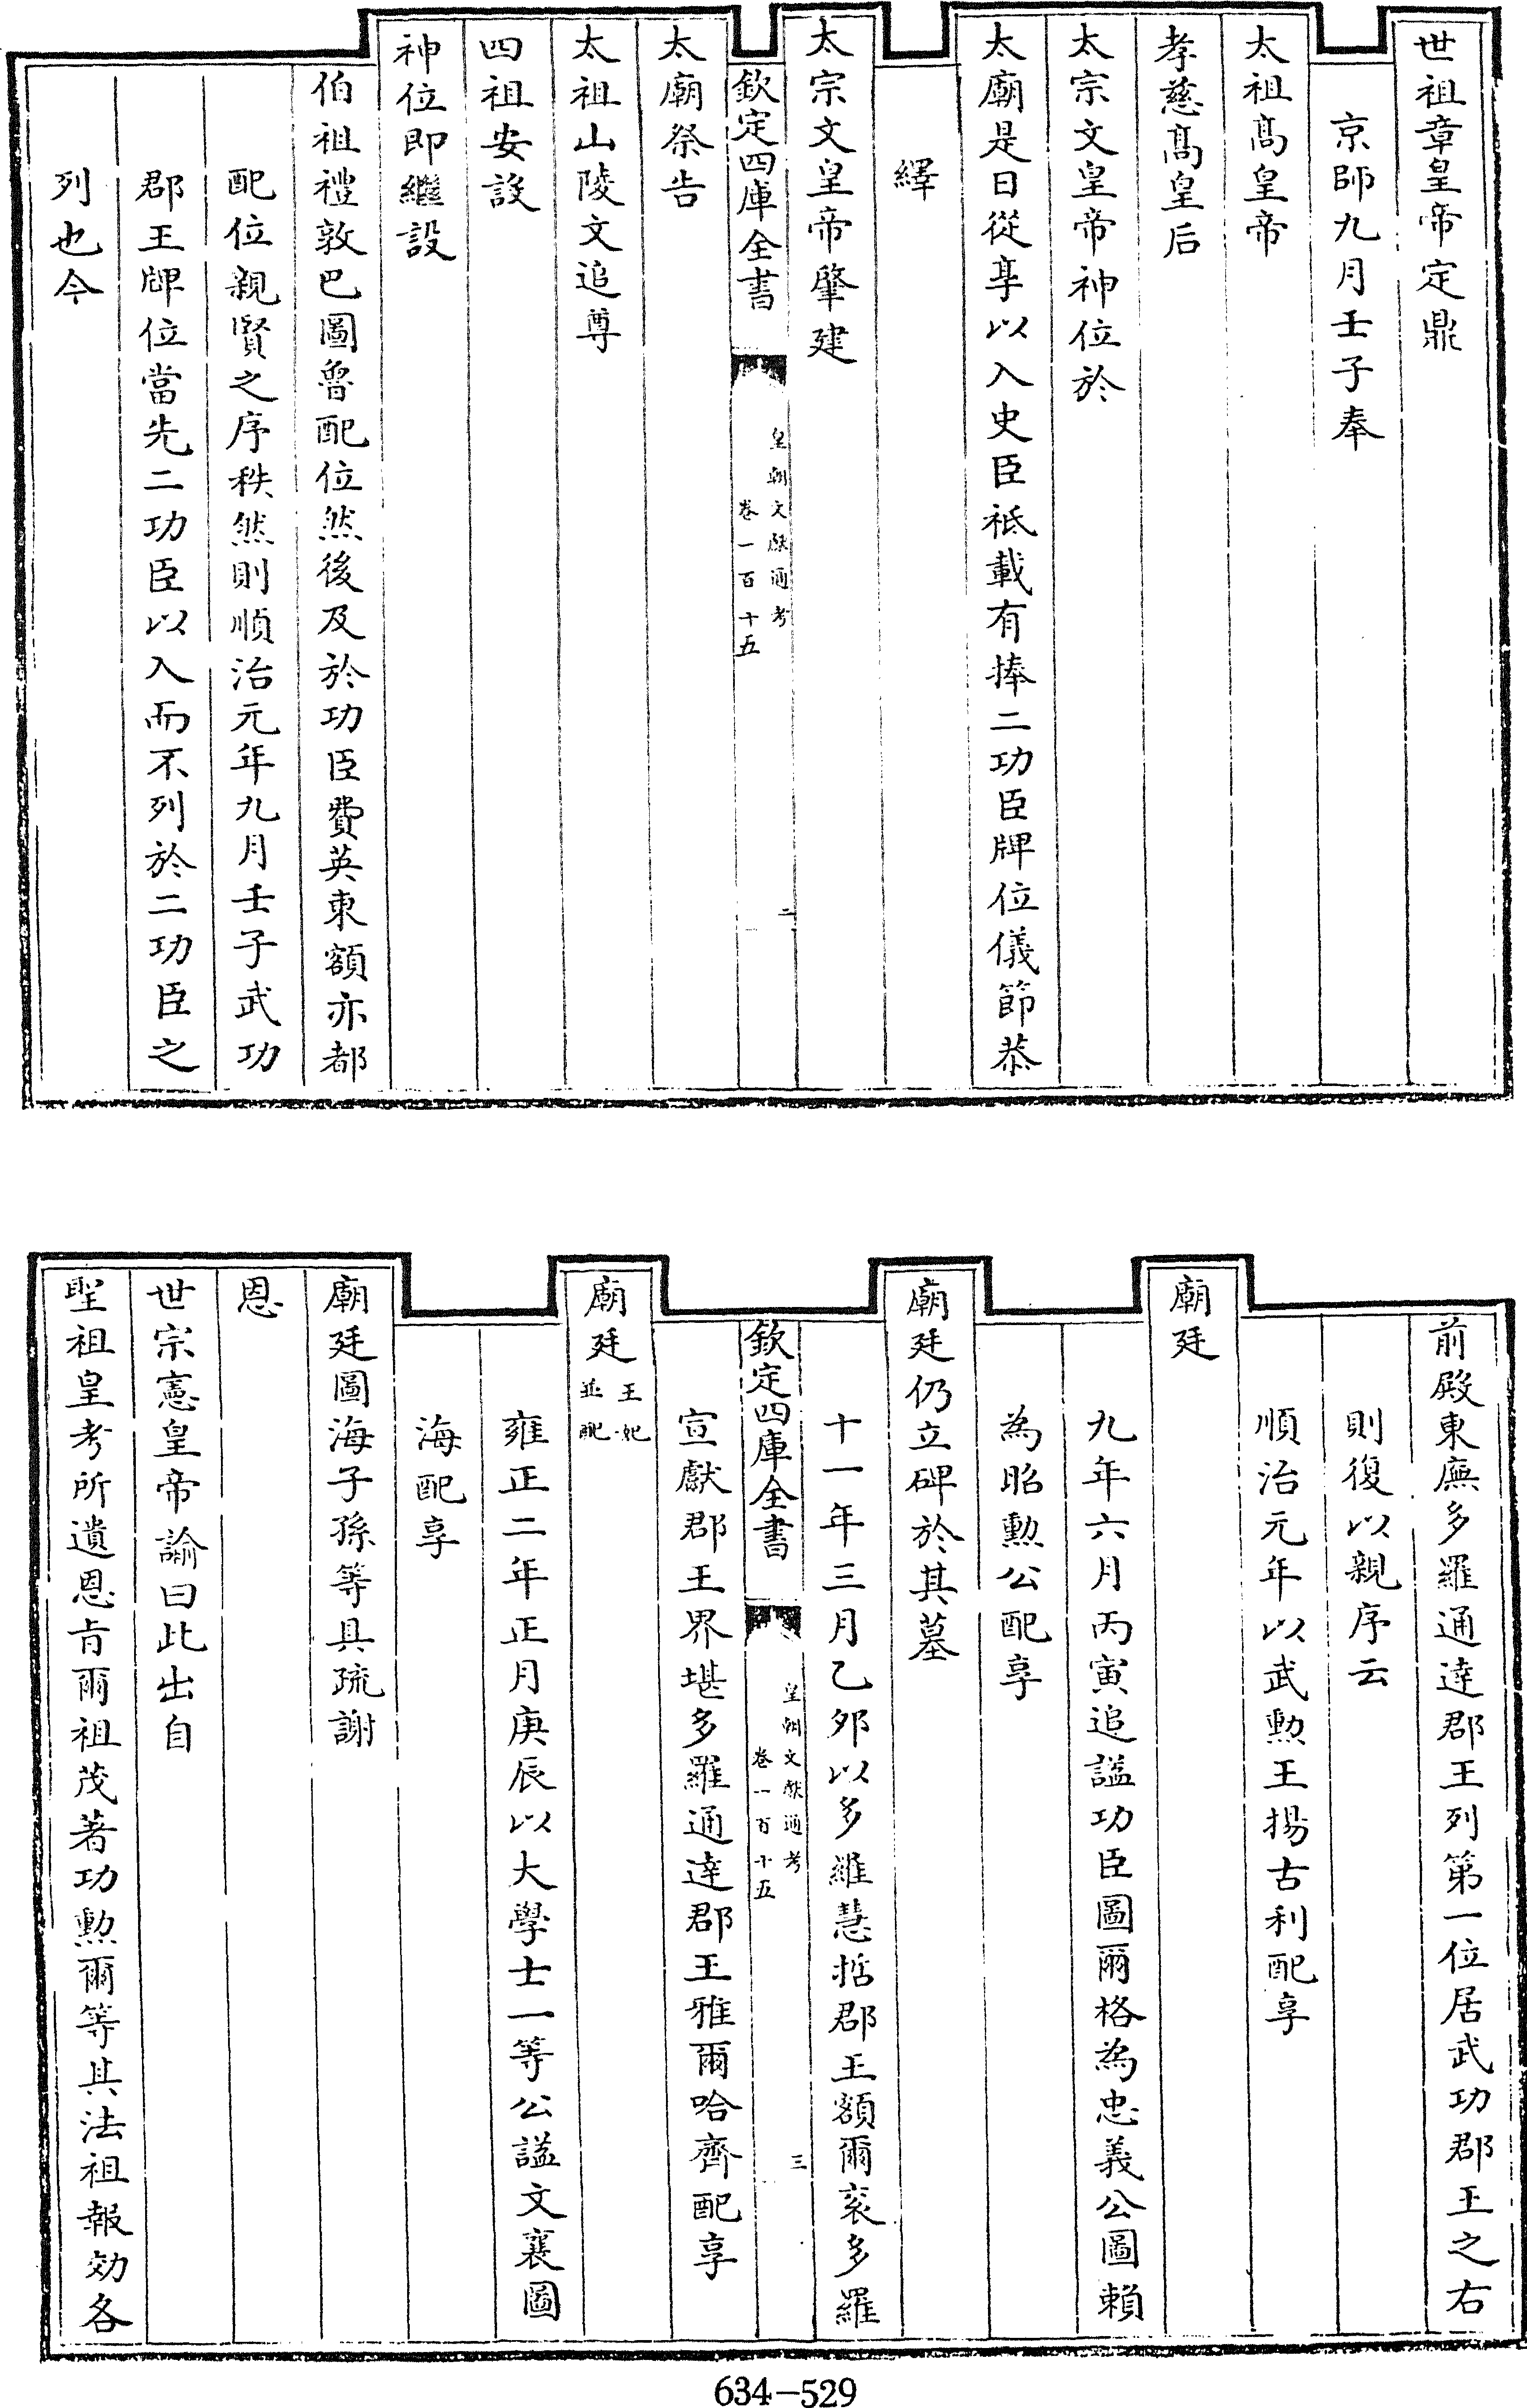 世祖章皇帝定鼎
京師九月壬子奉
太祖髙皇帝
孝慈髙皇后
太宗文皇帝神位於
太廟是日從享以入史臣祗載有捧二功臣牌位儀節恭
繹
太宗文皇帝肇建
欽定四庫全書
皇朝文獻通考
卷一百十五
二
太廟祭告
太祖山陵文追尊
四祖安設
神位即繼設
伯祖禮敦巴圖魯配位然後及於功臣費英東額亦都
配位親賢之序秩然則順治元年九月壬子武功
郡王牌位當先二功臣以入而不列於二功臣之
列也今
前殿東廡多羅通達郡王列第一位居武功郡王之右
則復以親序云
順治元年以武勲王揚古利配享
廟廷
九年六月丙寅追諡功臣圖爾格為忠義公圖賴
為昭勲公配享
廟廷仍立碑於其墓
十一年三月乙夘以多羅慧哲郡王額爾衮多羅
欽定四庫全書
皇朝文獻通考
卷一百十五
三
宣獻郡王界堪多羅通達郡王雅爾哈齊配享
廟廷王妃並配
雍正二年正月庚辰以大學士一等公諡文襄圖
海配享
廟廷圖海子孫等具疏謝
恩
世宗憲皇帝諭曰此出自
聖祖皇考所遺恩旨爾祖茂著功勲爾等其法祖報効各
634-529